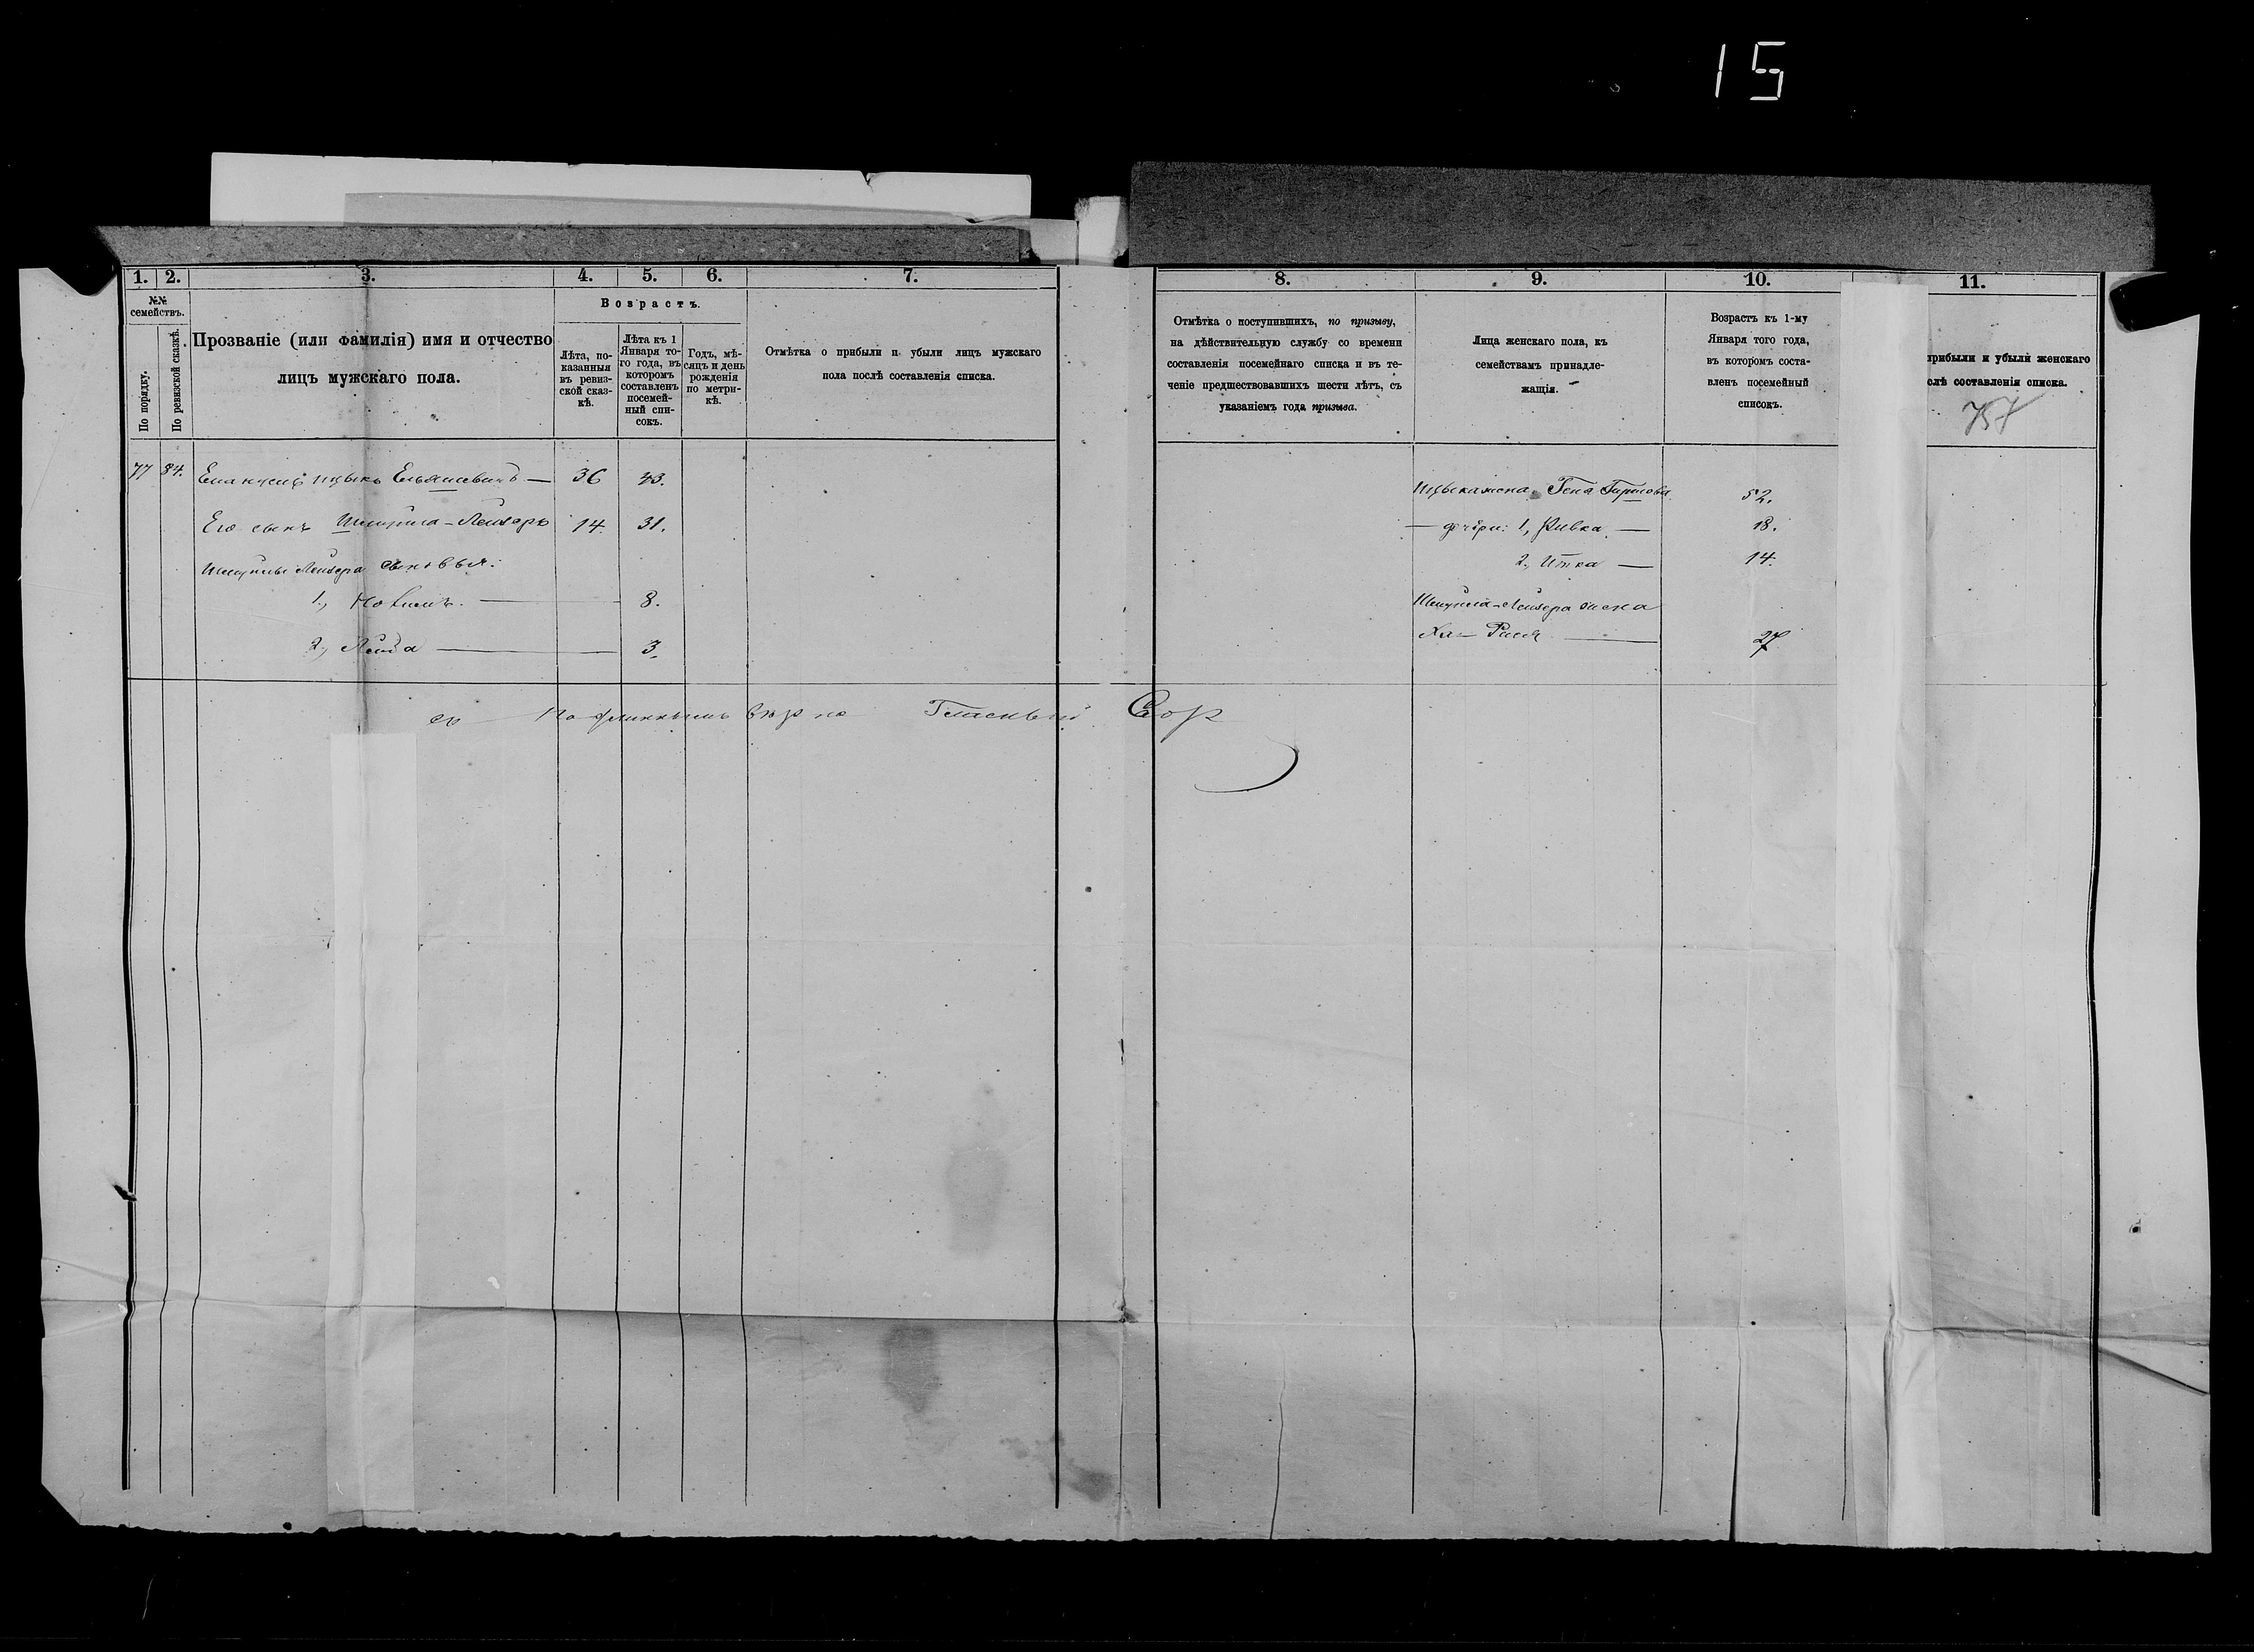 15
1. 2. 3. 4. 5. 6. 7. 8. 9. 10. 11.
№№ семействъ.
По порядку.
По ревизской сказкѣ.
Прозваніе (или фамилія) имя и отчество
лицъ мужскаго пола.
Возрастъ.
Лѣта, по-
казанныя
въ ревиз-
ской сказ-
кѣ.
Лѣта къ 1
Января то-
го года, въ
которомъ
составленъ
посемей-
ный спи-
сокъ.
Годъ, мѣ-
сяцъ и день
рожденія
по метри-
кѣ.
Отмѣтка о прибыли и убыли лицъ мужскаго
пола послѣ составленія списка.
Отмѣтка о поступившихъ, по призыву,
на дѣйствительную службу со времени
составленія посемейнаго списка и въ те-
ченіе предшествовавшихъ шести лѣтъ, съ
указаніемъ года призыва.
Лица женскаго пола, къ
семействамъ принадле-
жащія.
Возрастъ къ 1-му
Января того года,
въ которомъ соста-
вленъ посемейный
списокъ.
прибыли и убыли женскаго
слѣ составленія списка.
757
77 84. Ицыкъ Ельяшевичъ — 36
Его сынъ Шмуйла-Лейзеръ 14. 31.
Шмуйлы Лейзера сыновья:
1., — 8.
2., — 3.
Ицыка жена Гена Гиршова 52.
— дочери: 1, Ривка — 18.
2., Итка — 14.
Шмуйла-Лейзера жена
Хая- — 27
съ подлиннымъ вѣрно Гласный